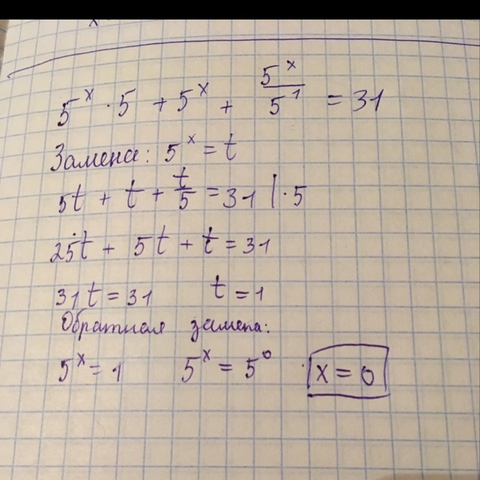 5^x · 5 + 5^x + 5^x/5^1 = 31
Замена: 5^x = t
5t + t + t/5 = 31 | · 5
25t + 5t + t = 31
31t = 31 t = 1
Обратная замена:
5^x = 1 5^x = 5^0 x = 0